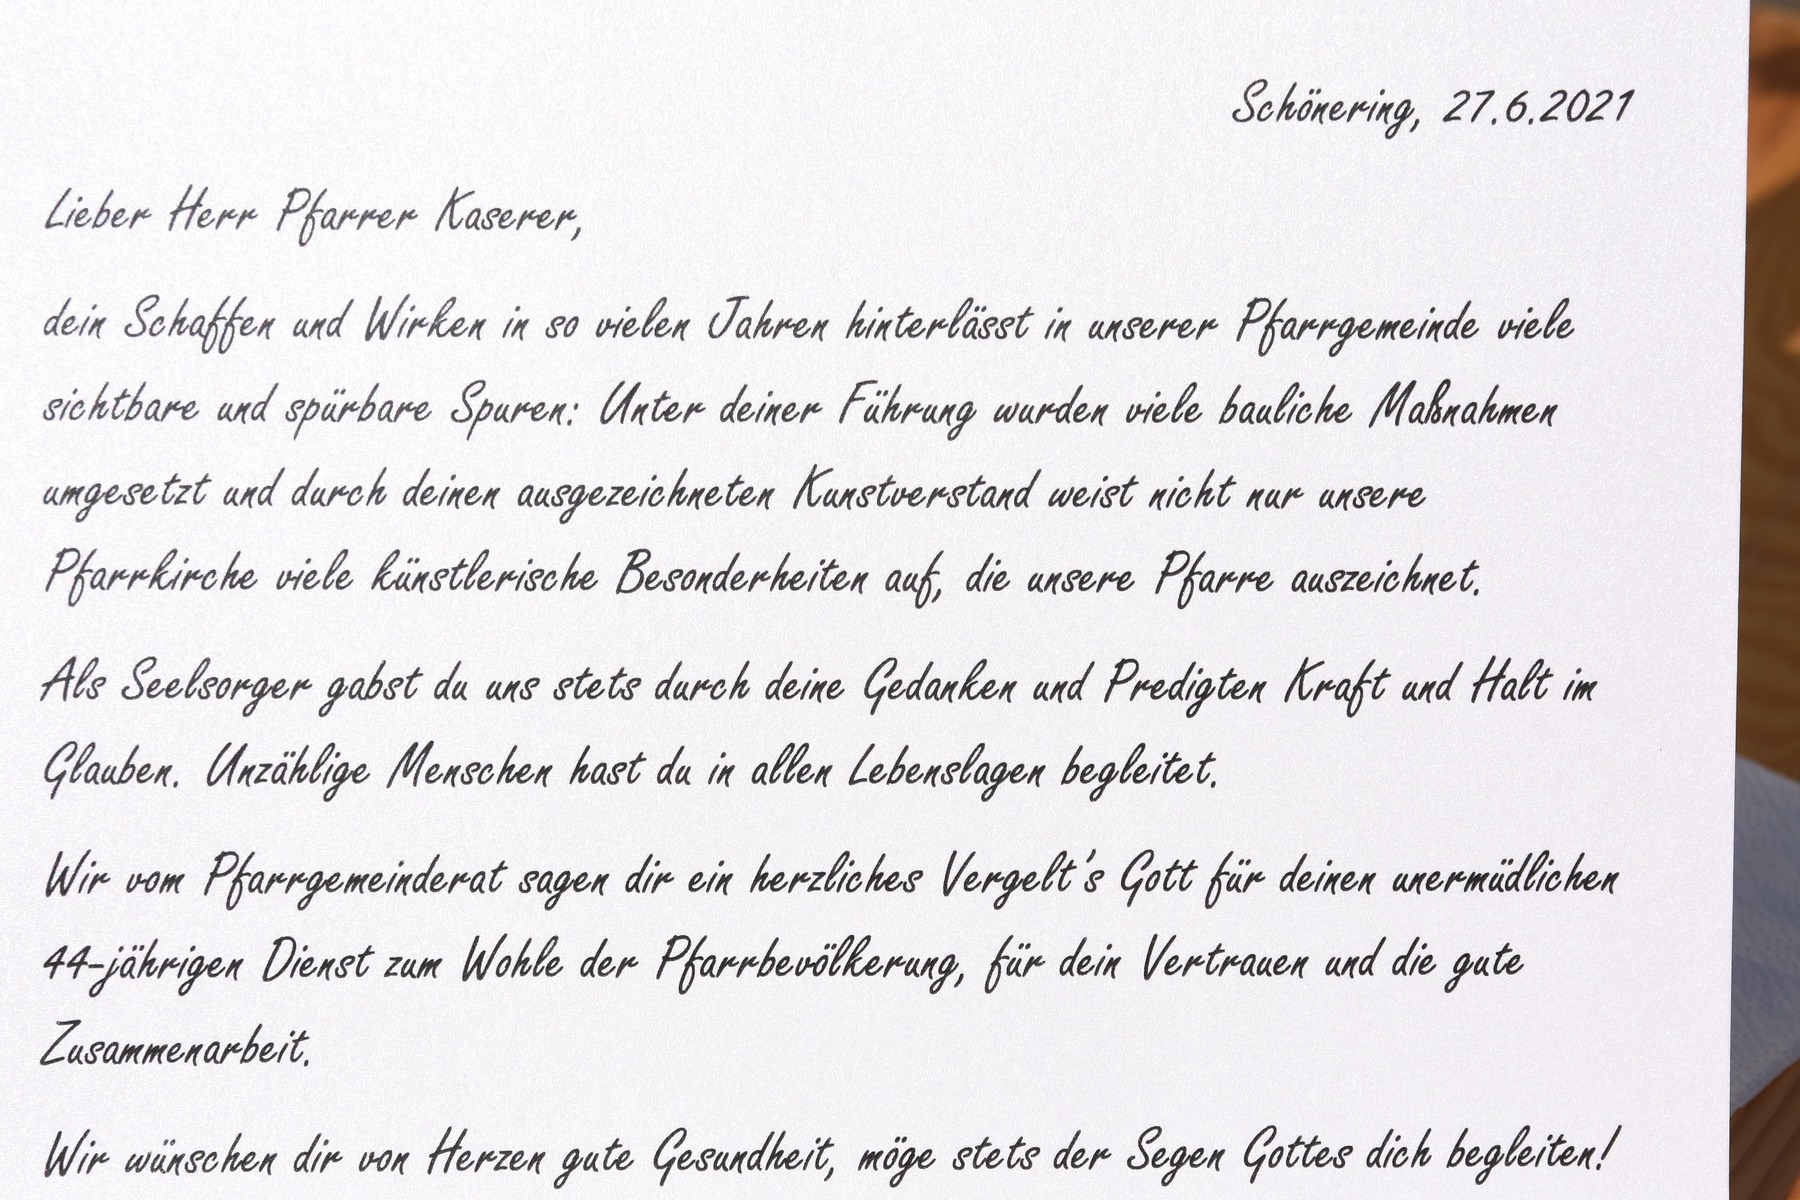 Schönering, 27.6.2021
Lieber Herr Pfarrer Kaserer,
dein Schaffen und Wirken in so vielen Jahren hinterlässt in unserer Pfarrgemeinde viele
sichtbare und spürbare Spuren: Unter deiner Führung wurden viele bauliche Maßnahmen
umgesetzt und durch deinen ausgezeichneten Kunstverstand weist nicht nur unsere
Pfarrkirche viele künstlerische Besonderheiten auf, die unsere Pfarre auszeichnet.
Als Seelsorger gabst du uns stets durch deine Gedanken und Predigten Kraft und Halt im
Glauben. Unzählige Menschen hast du in allen Lebenslagen begleitet.
Wir vom Pfarrgemeinderat sagen dir ein herzliches Vergelt's Gott für deinen unermüdlichen
44-jährigen Dienst zum Wohle der Pfarrbevölkerung, für dein Vertrauen und die gute
Zusammenarbeit.
Wir wünschen dir von Herzen gute Gesundheit, möge stets der Segen Gottes dich begleiten!